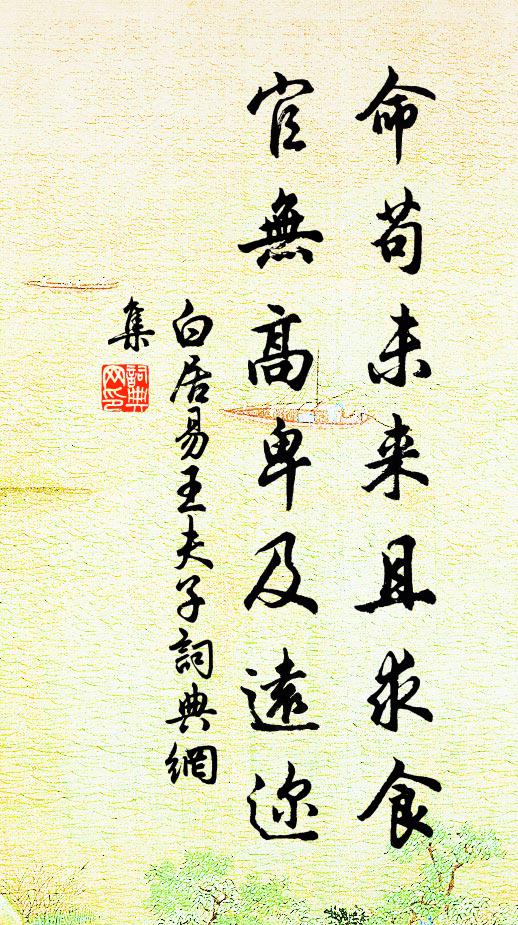 命苟未来且求食
官無高卑及遠迩
白居易王夫子詞典網
集
詞典
网印